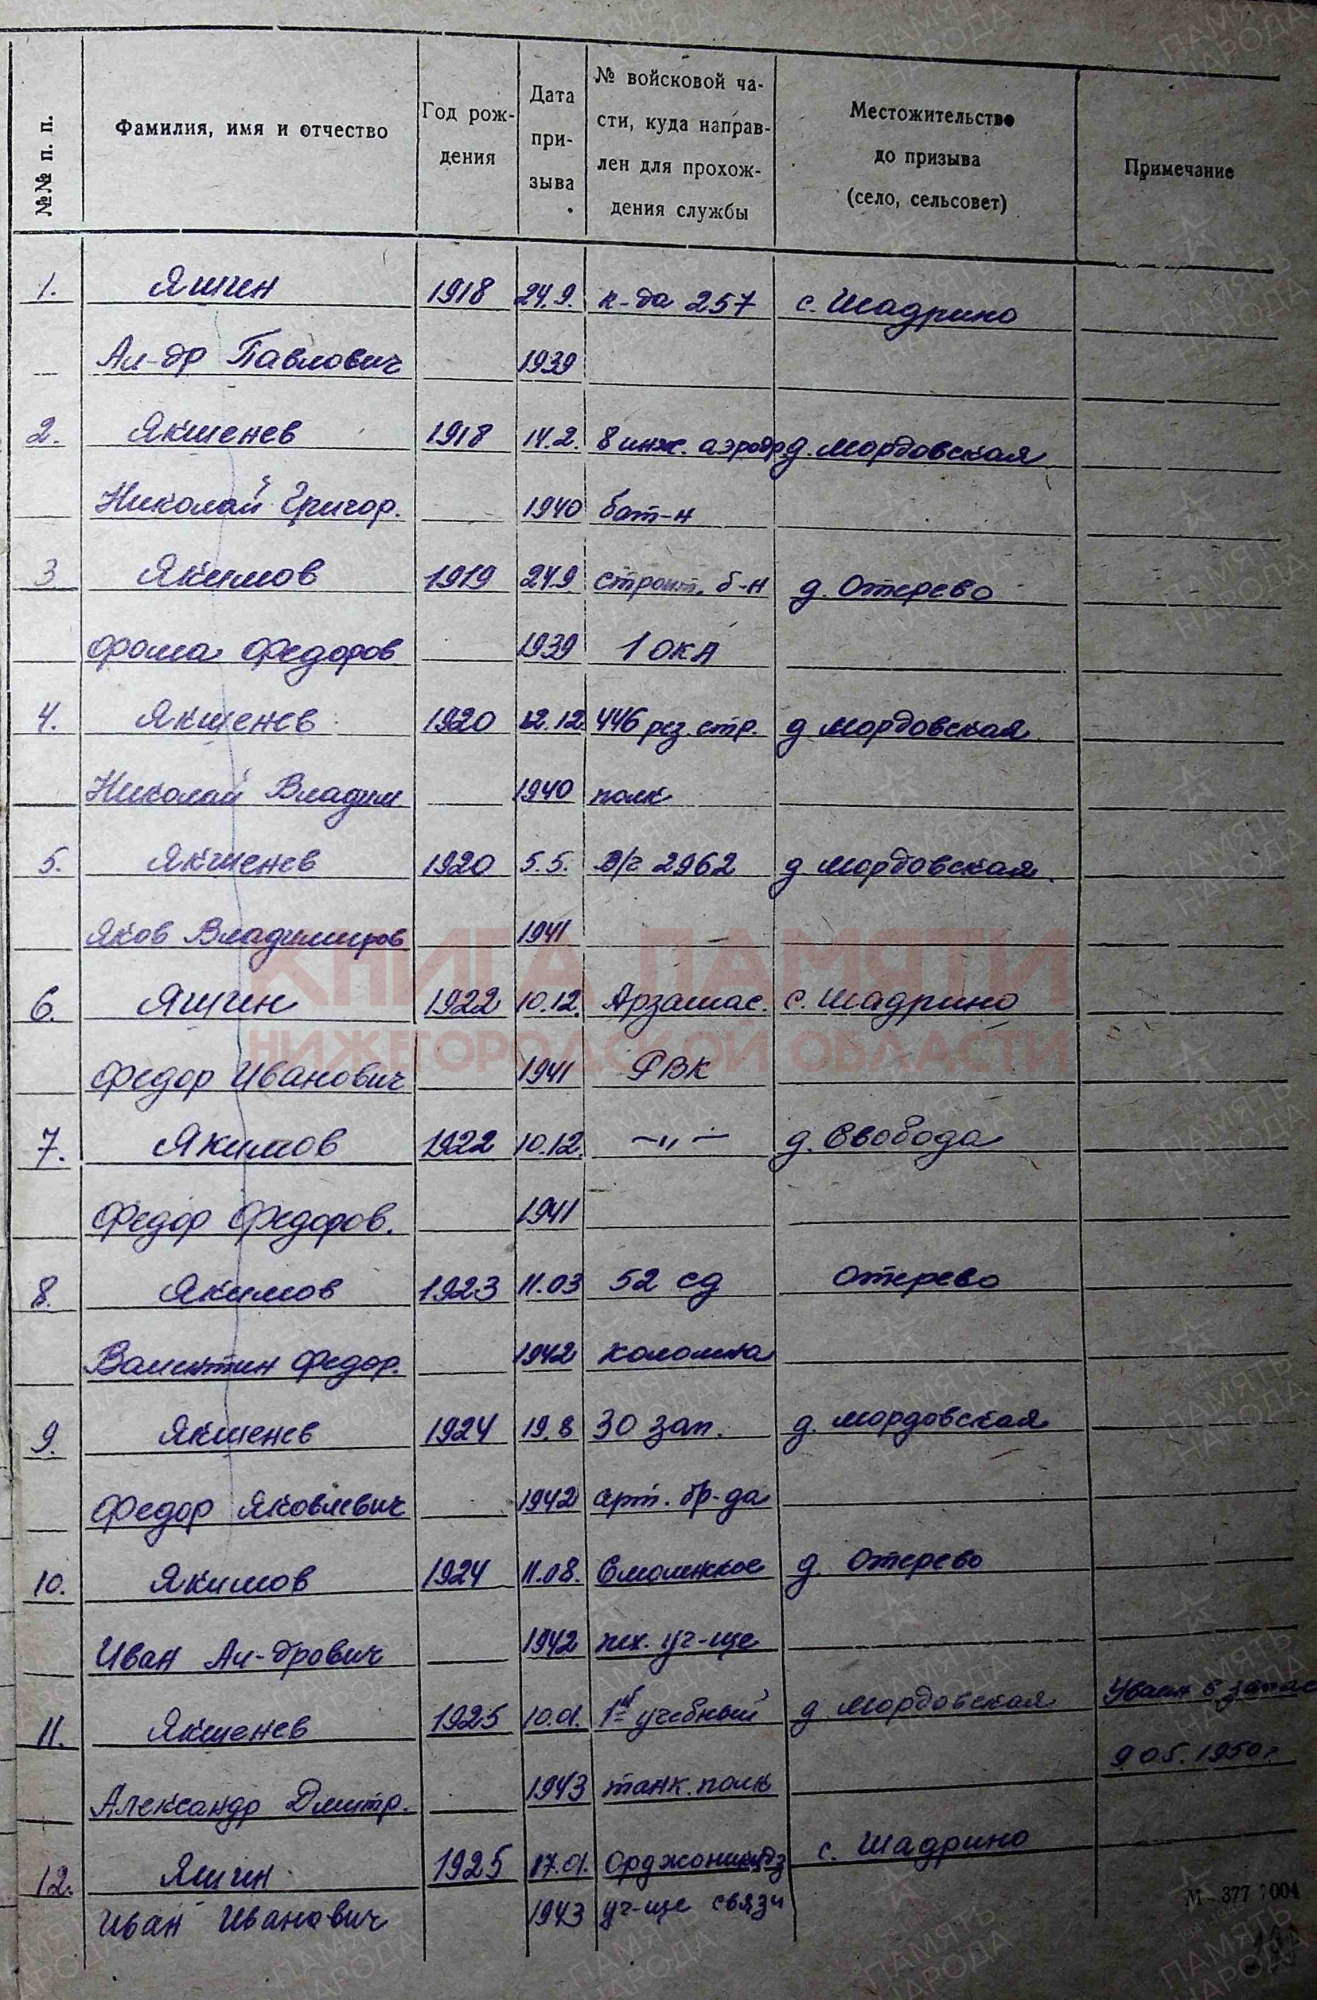 №№ п. п.
Фамилия, имя и отчество
Год рож-
дения
Дата
при-
зыва
№ войсковой ча-
сти, куда направ-
лен для прохож-
дения службы
Местожительство
до призыва
(село, сельсовет)
Примечание
1. Яшин 1918 24.9. к-да 257 с. Шадрино
Ал-др Павлович 1939
2. Якшенев 1918 14.2. 8 инж. аэродр д. Мордовская
Николай Григор. 1940 бат-н
3 Якимов 1919 24.9 строит. б-н д. Отерево
Фома Федоров 1939 1 ОКА
4. Якшенев 1920 12.12 446 рез. стр. д Мордовская
Николай Владим 1940 полк
5. Якшенев 1920 5.5. в/ч 2962 д Мордовская
Яков Владимиров 1941
КНИГА ПАМЯТИ
6. Яшин 1922 10.12. Арзамас. с. Шадрино
НИЖЕГОРОДСКОЙ ОБЛАСТИ
Федор Иванович 1941 РВК
7. Якимов 1922 10.12. —„— д. Свобода
Федор Федоров. 1941
8. Якимов 1923 11.03 52 сд Отерево
Валентин Федор. 1942 Коломна
9. Якшенев 1924 19.8 30 зап. д. Мордовская
Федор Яковлевич 1942 арт. бр-да
10. Якимов 1924 11.08. Смоленское д. Отерево
Иван Ал-дрович 1942 пех. уч-ще
11. Якшенев 1925 10.01. 1й учебный д Мордовская Увол в запас
Александр Дмитр. 1943 танк. полк 9 05. 1950г
12. Яшин 1925 17.01. Орджоникидз с. Шадрино
Иван Иванович 1943 уч-ще связи
М-377 1004
ПАМЯТЬ
НАРОДА